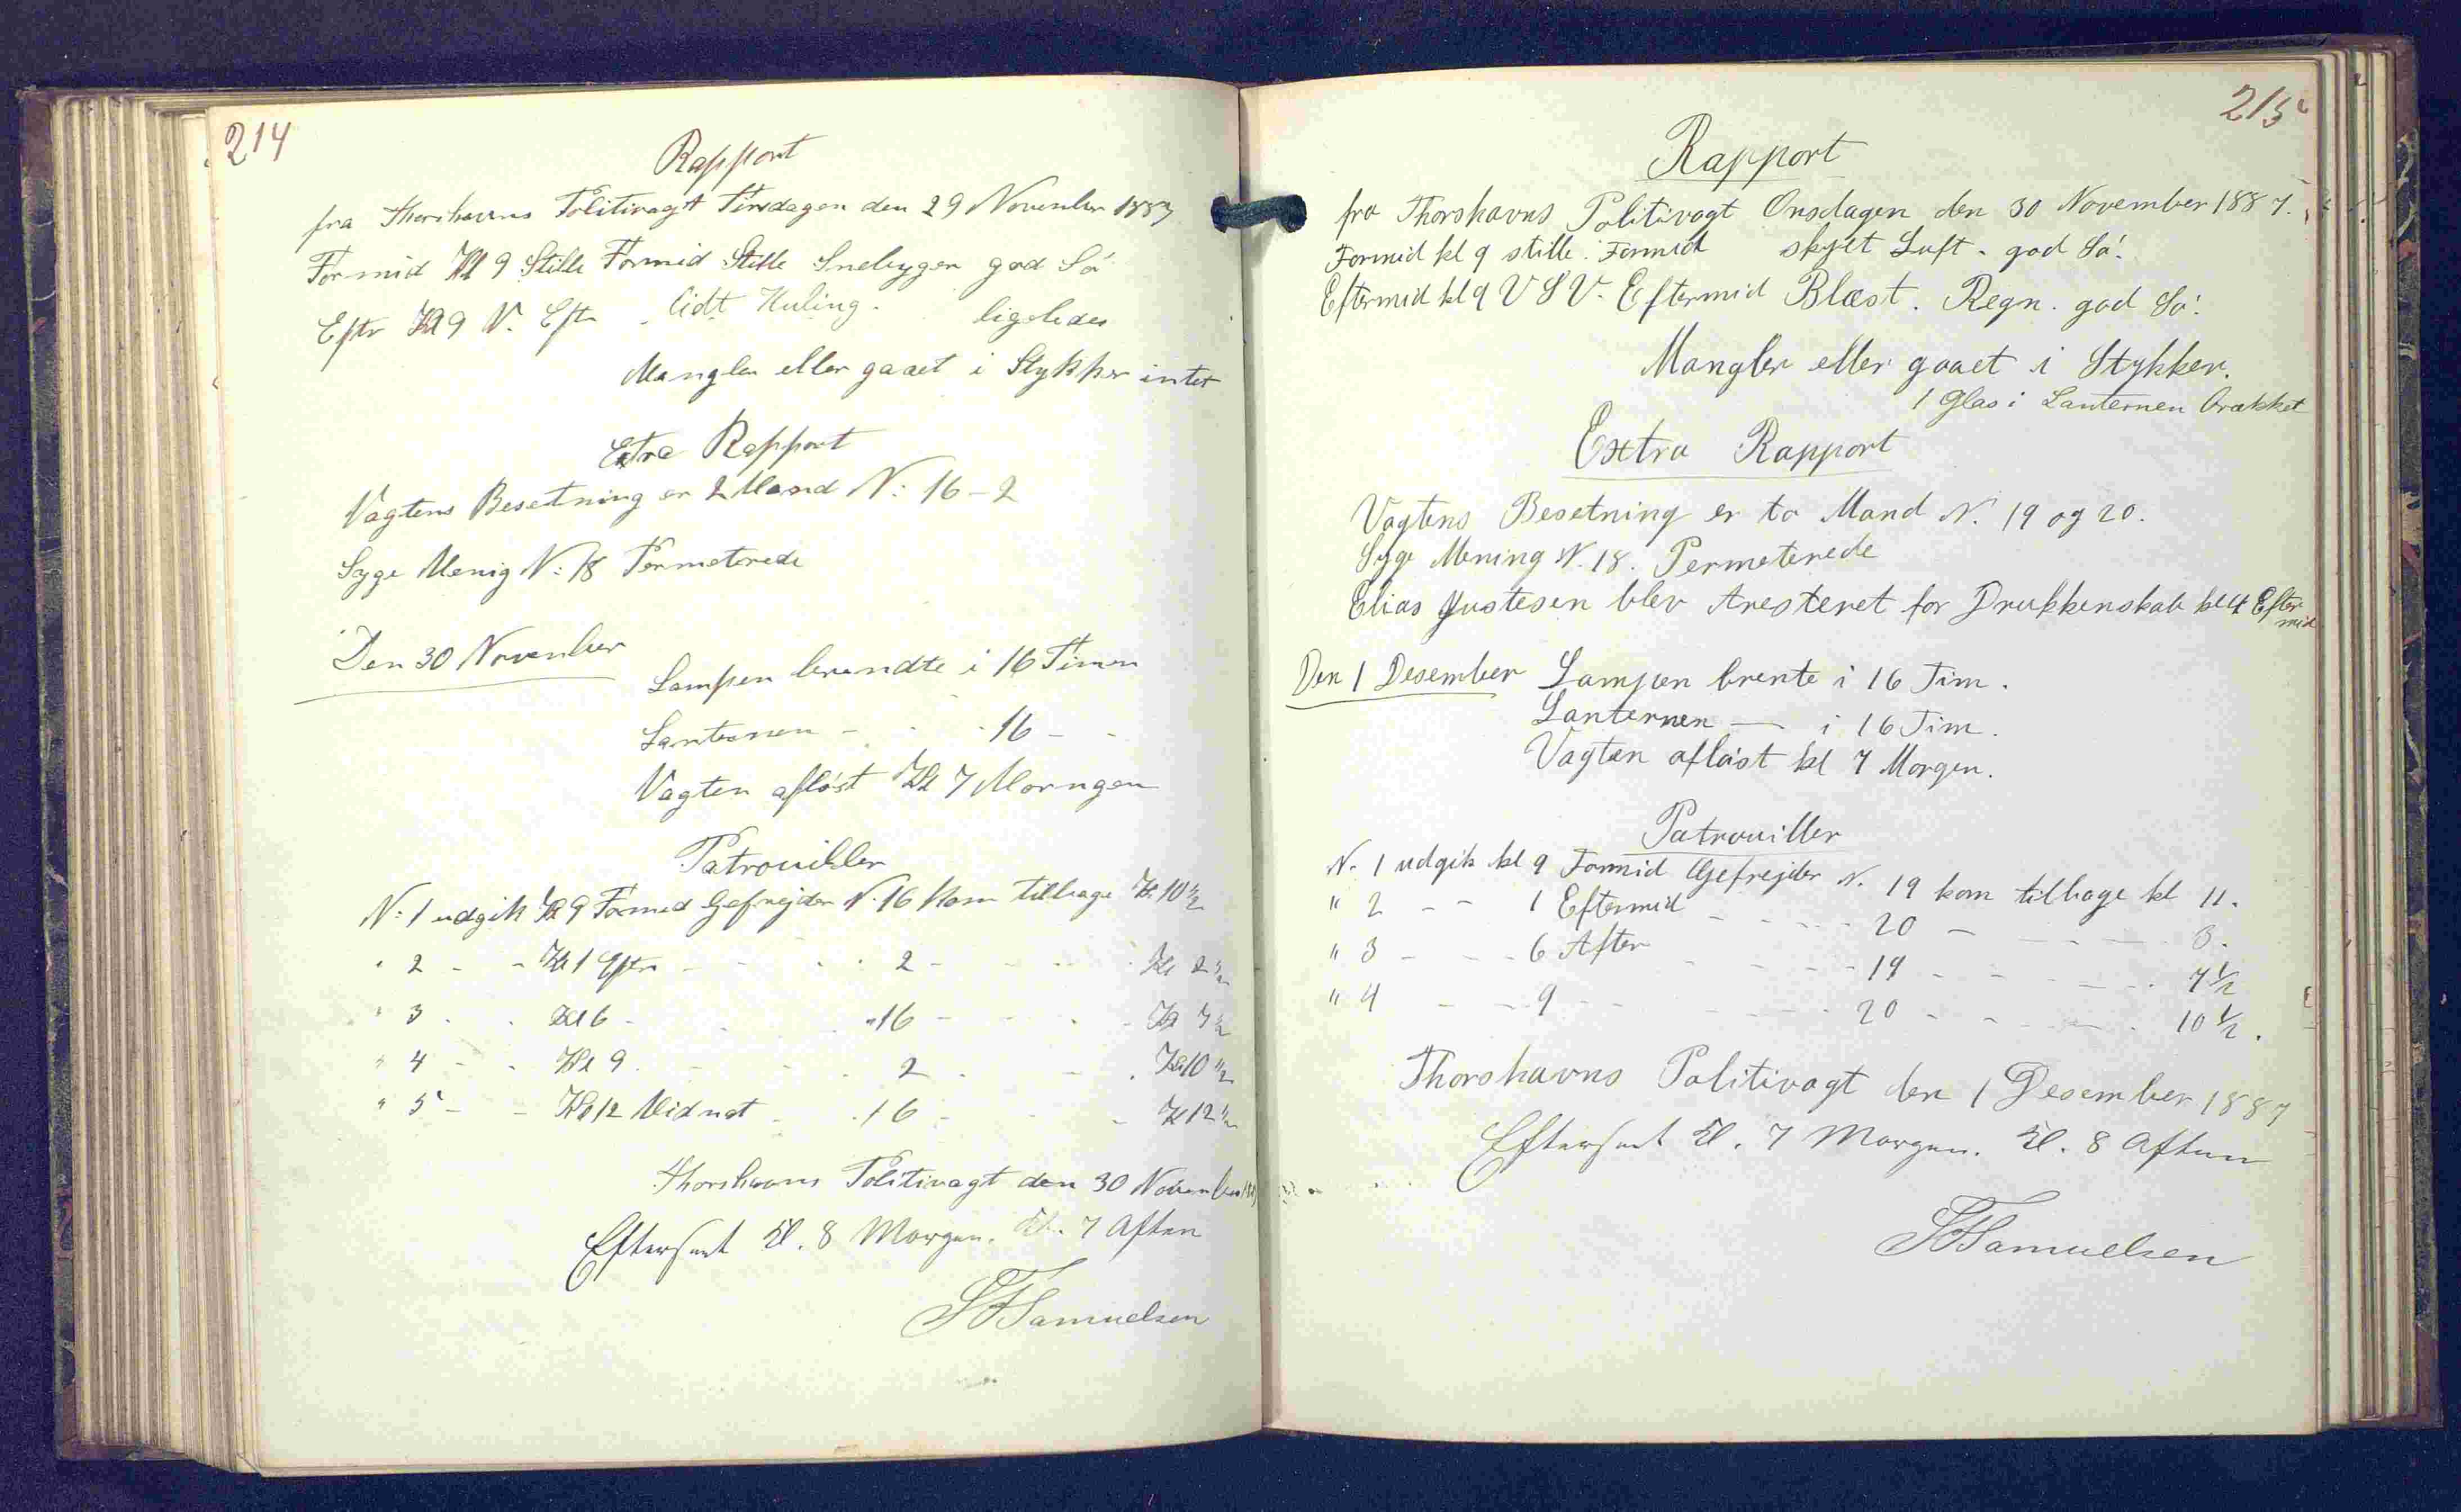 214
Rapport
fra Thorshavns Politivagt Tirsdagen den 29 November 1887
Formid Kl 9 Stille Formid Stille Snebyger god Sö
Eftr Kl 9 V. Eftr - lidt Kuling. ligeledes
Mangler eller gaaet i Stykker intet
Extra Rapport
Vagtens Besetning er 2 Mand N: 16 - 2
Syge Menig N: 18 Permeterede
Den 30 November
Lampen brendte i 16 Timer
Lanternen - - - 16 - -
Vagten aflöst Kl 7 Morngen
Patrouiller
N: 1 udgik Kl 9 Formid Gefrejder N. 16 kom tilbage Kl 10 1/2
" 2 - - Kl 1 Eftr - - - - 2 - - - - Kl 2 1/2
" 3 - - Kl 6 - - - "16 - - - Kl 7 1/2
" 4 - - Kl 9 - - - 2 - - - Kl 10 1/2
" 5 - - Kl 12 Midnat - - 16 - - Kl 12 1/2
Thorshavns Politivagt den 30 November
Efterseet Kl. 8 Morgen. Kl. 7 Aften
SFSamuelsen
215
Rapport
fra Thorshavns Politivagt Onsdagen den 30 November 1887.
Formid kl 9 stille. Formid skyet Luft. god Sö.
Eftermid kl 9 V S V. Eftermid Blæst. Regn. god Sö.
Mangler eller gaaet i Stykker.
1 Glas i Lanternen brækket
Extra Rapport
Vagtens Besetning er to Mand N. 19 og 20.
Syge Mening N. 18. Permeterede
Elias Justesen blev Aresteret for Drukkenskab kl 4 Efter
mid
Den 1 Desember Lampen brente i 16 Tim.
Lanternen — i 16 Tim.
Vagten aflöst kl 7 Morgen.
Patrouiller
N. 1 udgik kl 9 Formid Gefrejder N. 19 kom tilbage kl 11.
" 2 - - 1 Eftermid - - - - 20 - - - - 3.
" 3 - - - 6 After - - - - 19 - - - - 7 1/2
" 4 - - 9 - - - - - - 20 - - - - 10 1/2.
Thorshavns Politivagt den 1 Desember 1887
Efterseet Kl. 7 Morgen. Kl. 8 Aften
SFSamuelsen